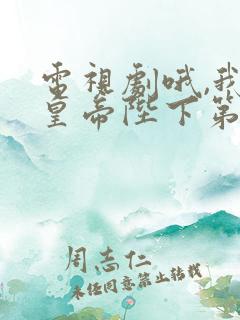 電視劇哦,我
皇帝陛下第
周志仁
未經同意禁止轉載